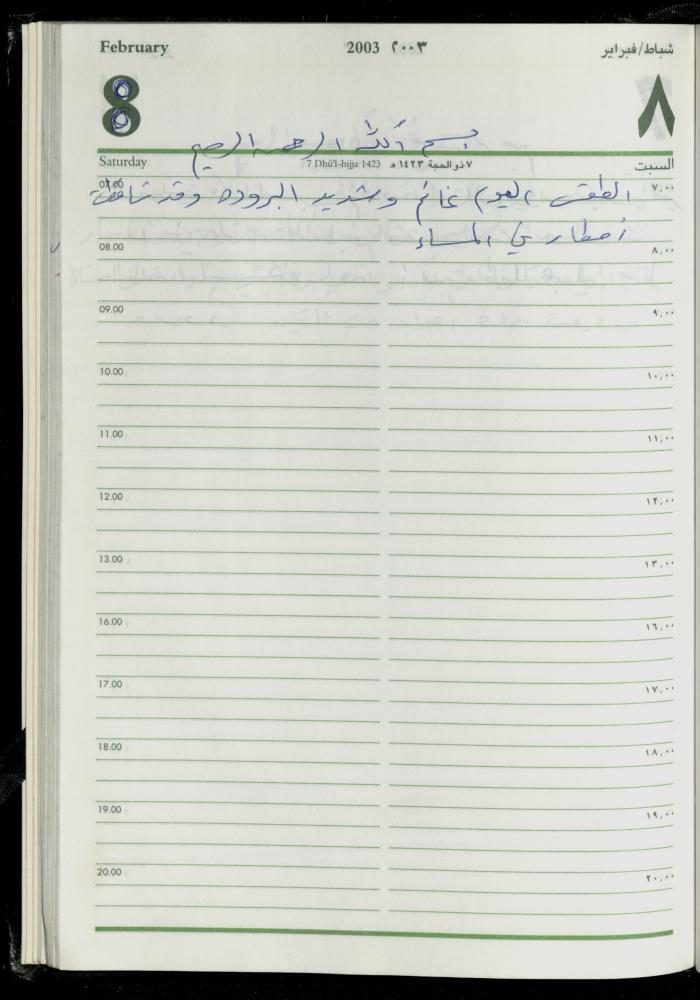 February 2003 ٢٠٠٣ شباط/فبراير
8 ٨
بسم الله الرحمن الرحيم
Saturday 7 Dhū'l-hijja 1423 ٧ ذو الحجة ١٤٢٣ هـ السبت
الطقس اليوم غائم وشديد البروده وقد تساقطة
أمطار في المساء
07.00 ٧,٠٠
08.00 ٨,٠٠
09.00 ٩,٠٠
10.00 ١٠,٠٠
11.00 ١١,٠٠
12.00 ١٢,٠٠
13.00 ١٣,٠٠
16.00 ١٦,٠٠
17.00 ١٧,٠٠
18.00 ١٨,٠٠
19.00 ١٩,٠٠
20.00 ٢٠,٠٠